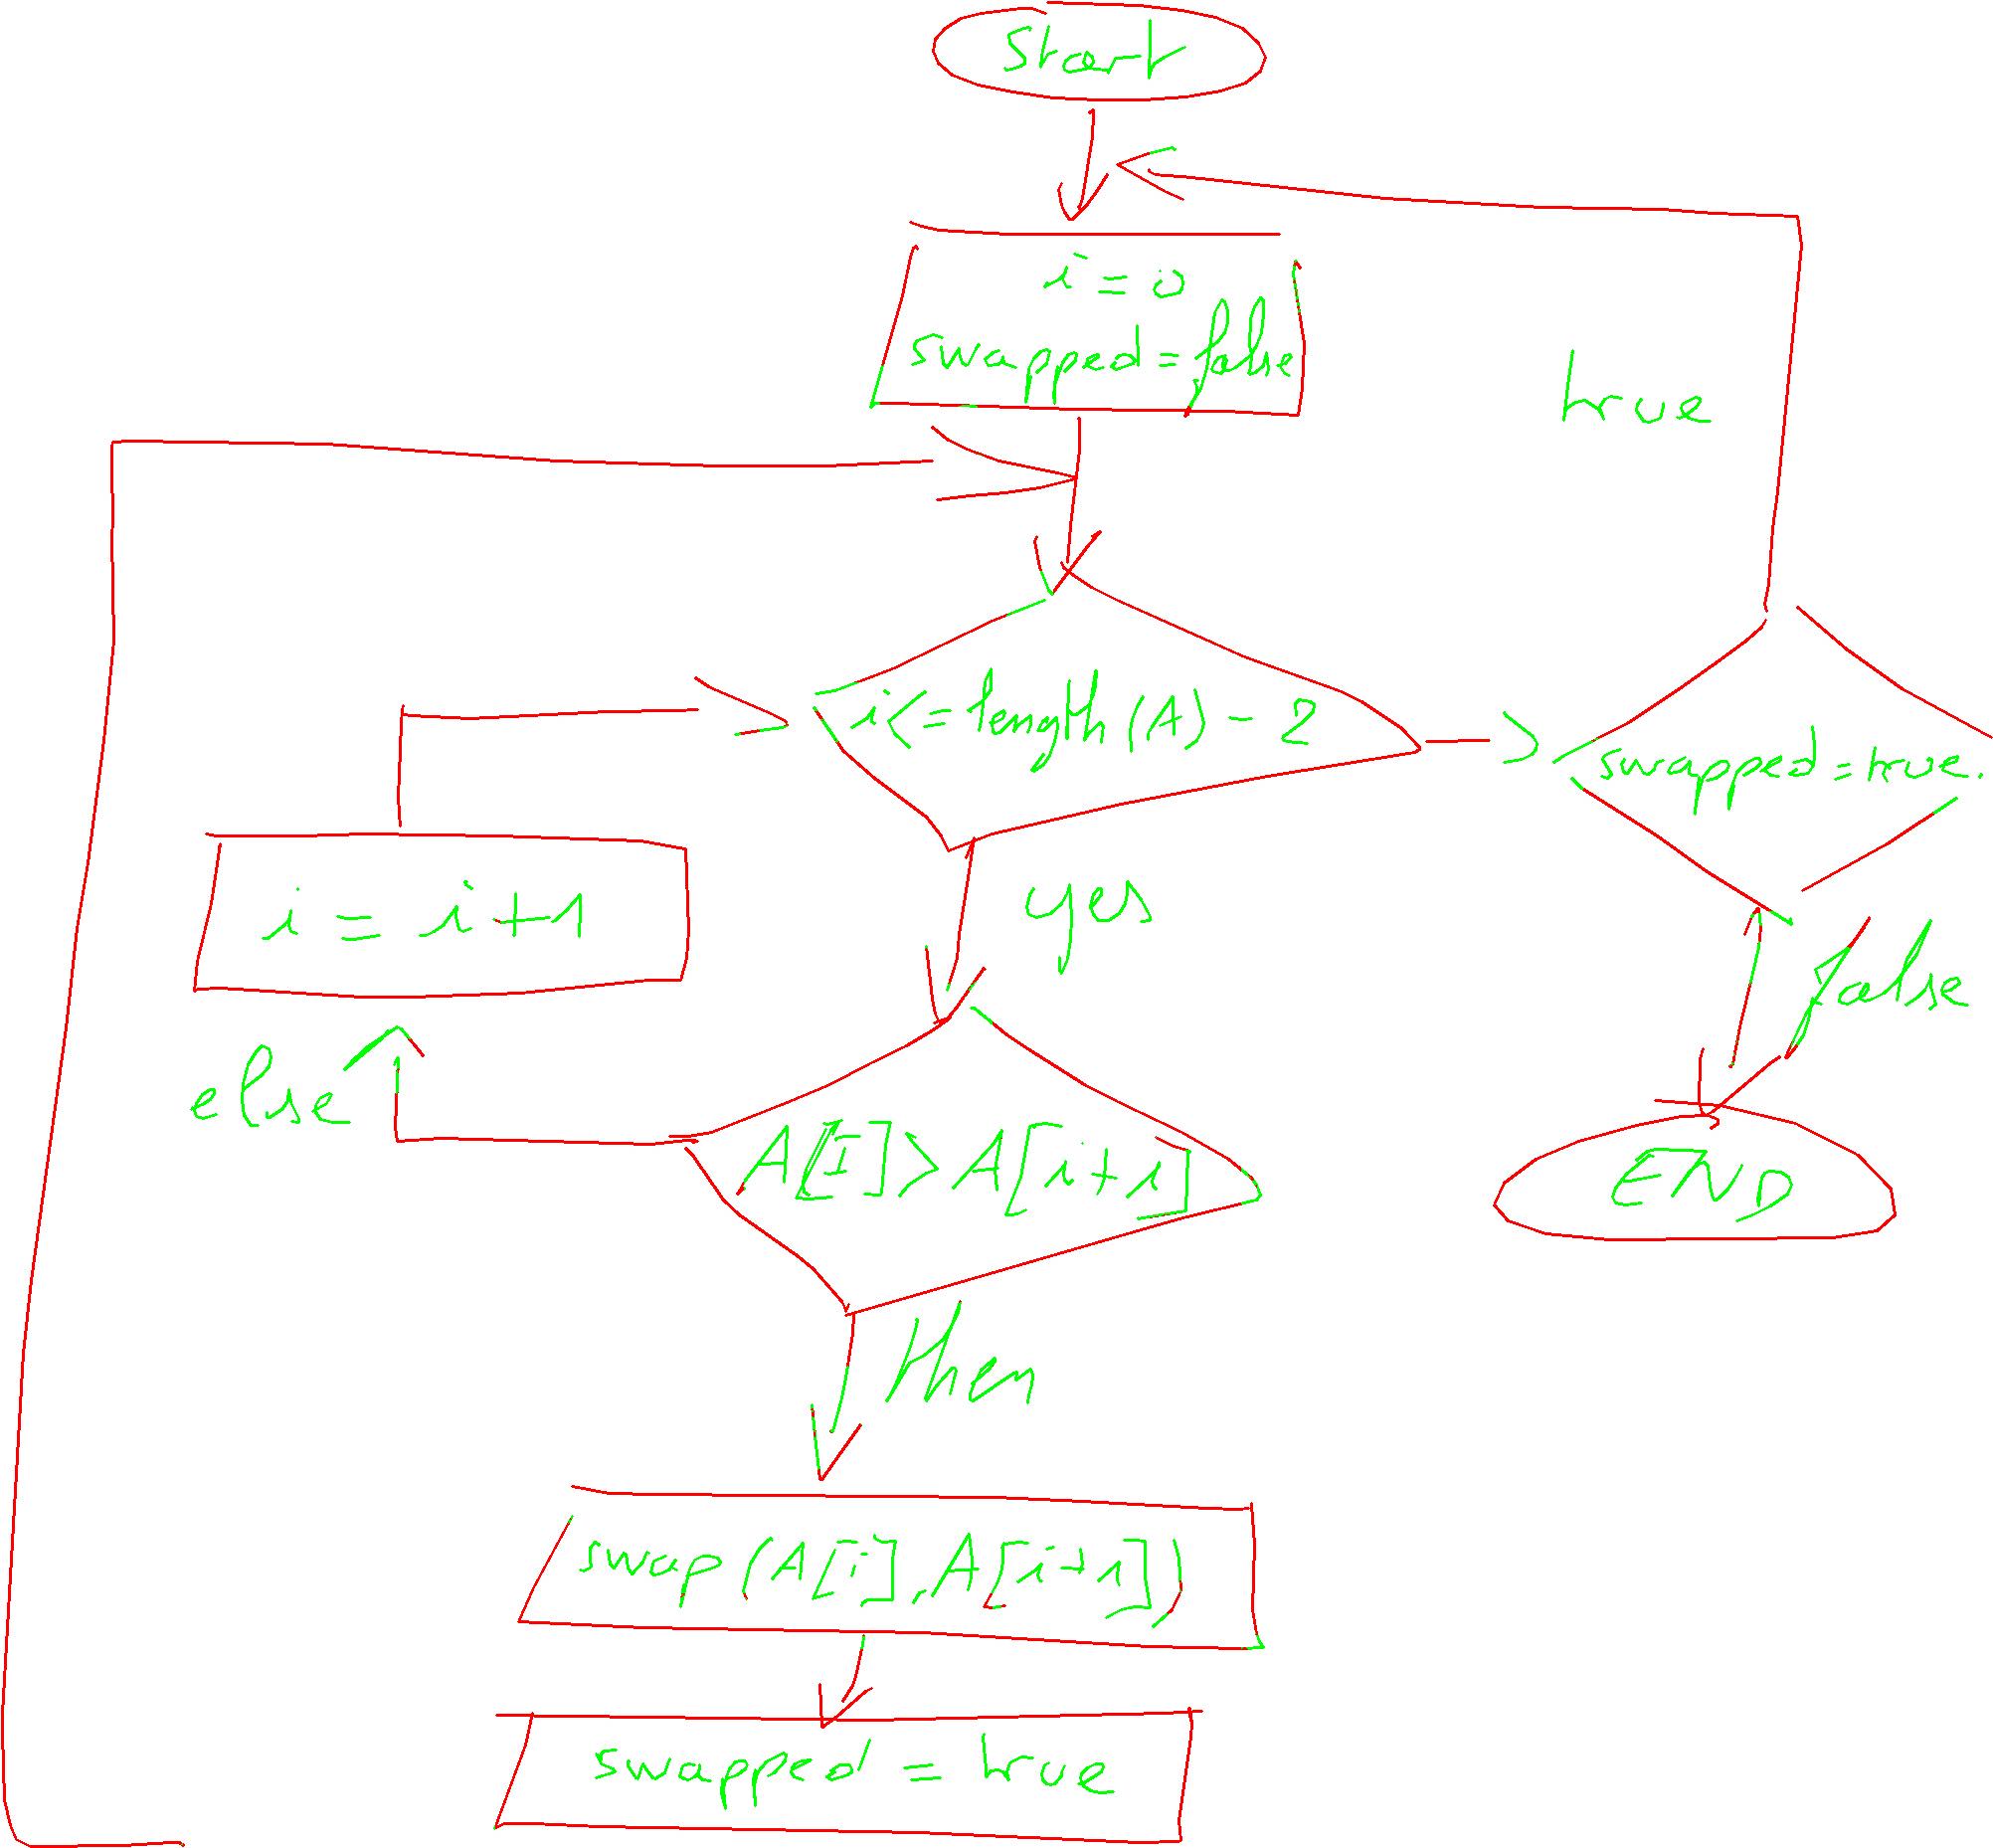 Start
i = 0
swapped = false
true
i <= length (A) - 2
swapped = true.
i = i + 1
yes
false
else
A[I] > A[i+1]
END
then
swap (A[i], A[i+1])
swapped = true